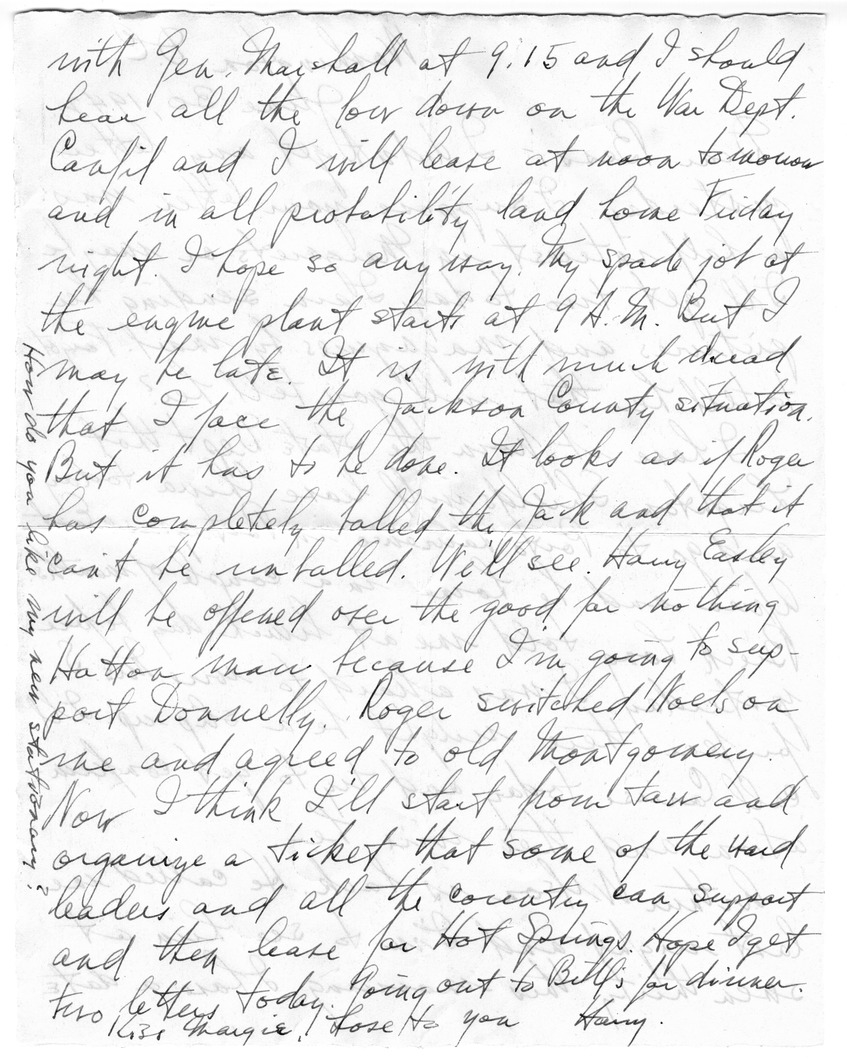 with Gen. Marshall at 9:15 and I should
hear all the low down on the War Dept.
Canfil and I will leave at noon tomorrow
and in all probability land home Friday
night. I hope so anyway. My spade job at
the engine plant starts at 9 A.M. But I
may be late. It is with much dread
that I face the Jackson County situation.
But it has to be done. It looks as if Roger
has completely balled the Jack and that it
can't be unballed. We'll see. Harry Easley
will be offered over the good for nothing
Hatton man because I'm going to sup-
port Donnelly. Roger switched Noels on
me and agreed to old Montgomery.
Now I think I'll start from taw and
organize a ticket that some of the ward
leaders and all the country can support
and then leave for Hot Springs. Hope I get
two letters today. Going out to Bill's for dinner.
Kiss Margie, Love to you Harry.
How do you like my new stationary?